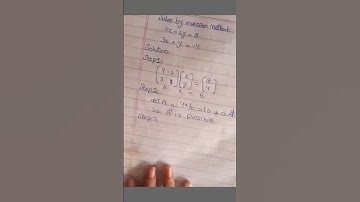 Solve by inversion method
4x - 2y = 8
3x + y = -4
Solution
Step1:
[4 -2 [x = [8
3 1] y] 4]
A x = B
Step2:
det A = 4+6 = 10 ≠ 0
So A⁻¹ is possible
Step 3